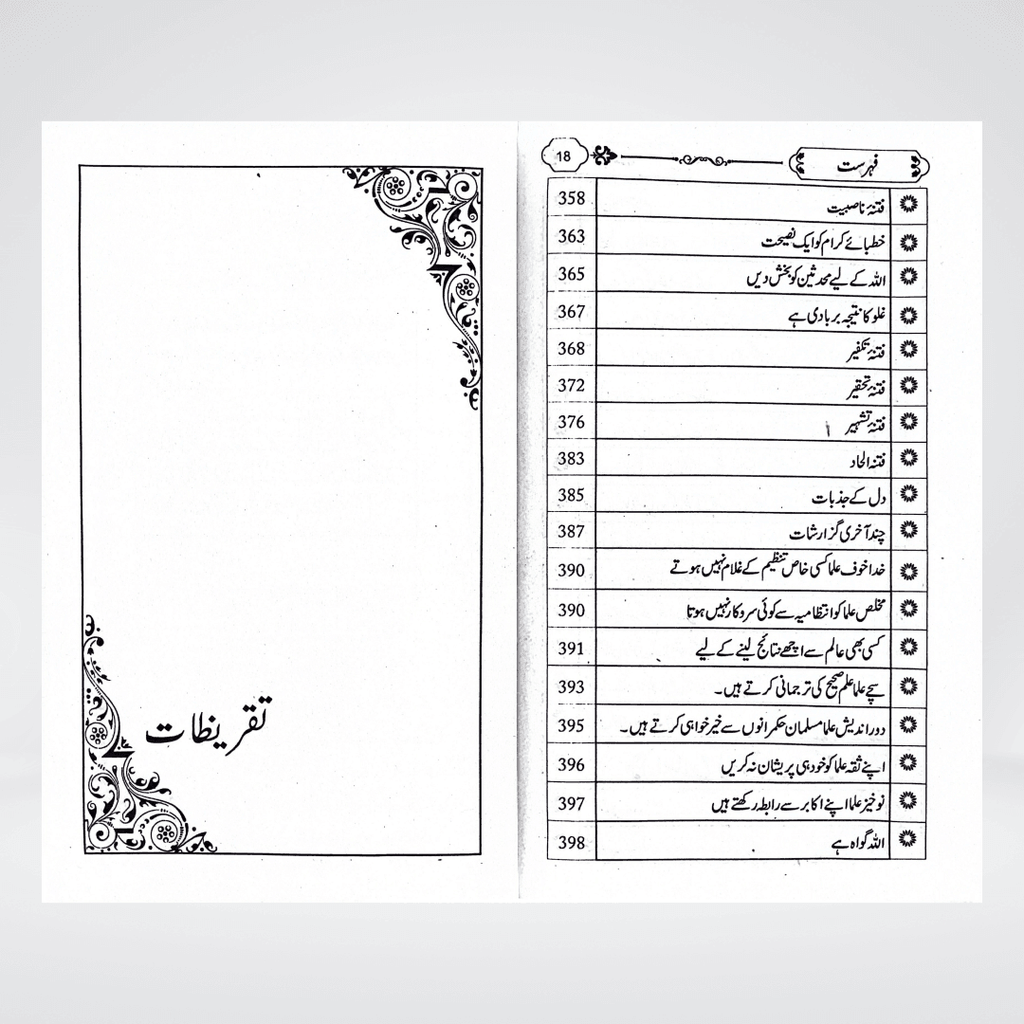 فہرست
18
فتنۂ ناصبیت 358
خطبائے کرام کو ایک نصیحت 363
اللہ کے لیے محدثین کو بخش دیں 365
غلو کا نتیجہ بربادی ہے 367
فتنۂ تکفیر 368
فتنۂ تحقیر 372
فتنۂ تشہیر 376
فتنہ الحاد 383
دل کے جذبات 385
چند آخری گزارشات 387
خدا خوف علما کسی خاص تنظیم کے غلام نہیں ہوتے 390
مخلص علما کو انتظامیہ سے کوئی سروکار نہیں ہوتا 390
کسی بھی عالم سے اچھے نتائج لینے کے لیے 391
سچے علما علم صحیح کی ترجمانی کرتے ہیں۔ 393
دور اندیش علما مسلمان حکمرانوں سے خیر خواہی کرتے ہیں۔ 395
اپنے ثقہ علما کو خود ہی پریشان نہ کریں 396
نوخیز علما اپنے اکابر سے رابطہ رکھتے ہیں 397
اللہ گواہ ہے 398
تقریظات